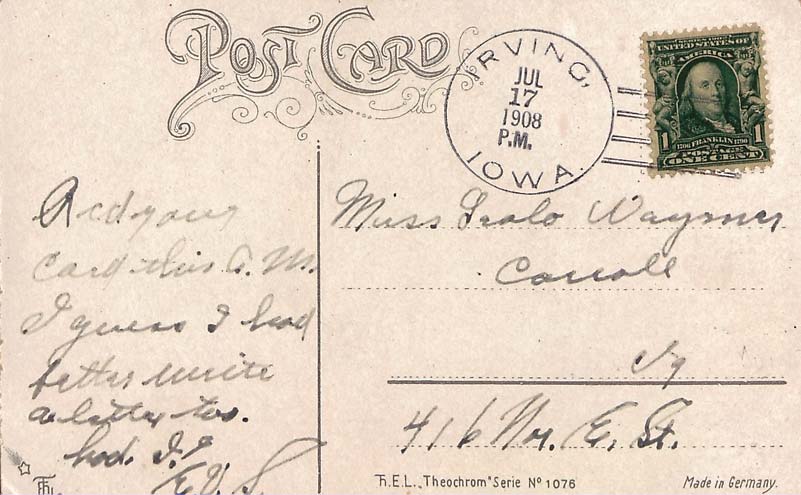 POST CARD
IRVING,
JUL
17
1908
P.M.
IOWA.
SERIES 1902
UNITED STATES OF
AMERICA
1 1
1706 FRANKLIN 1790
POSTAGE
ONE CENT
Rcd your
card this A.M.
I guess I had
better write
a letter too.
E.V.S.
Miss
Carroll
Ia
416 Nr. E. St.
Th.E.L. „Theochrom" Serie No 1076
Made in Germany.